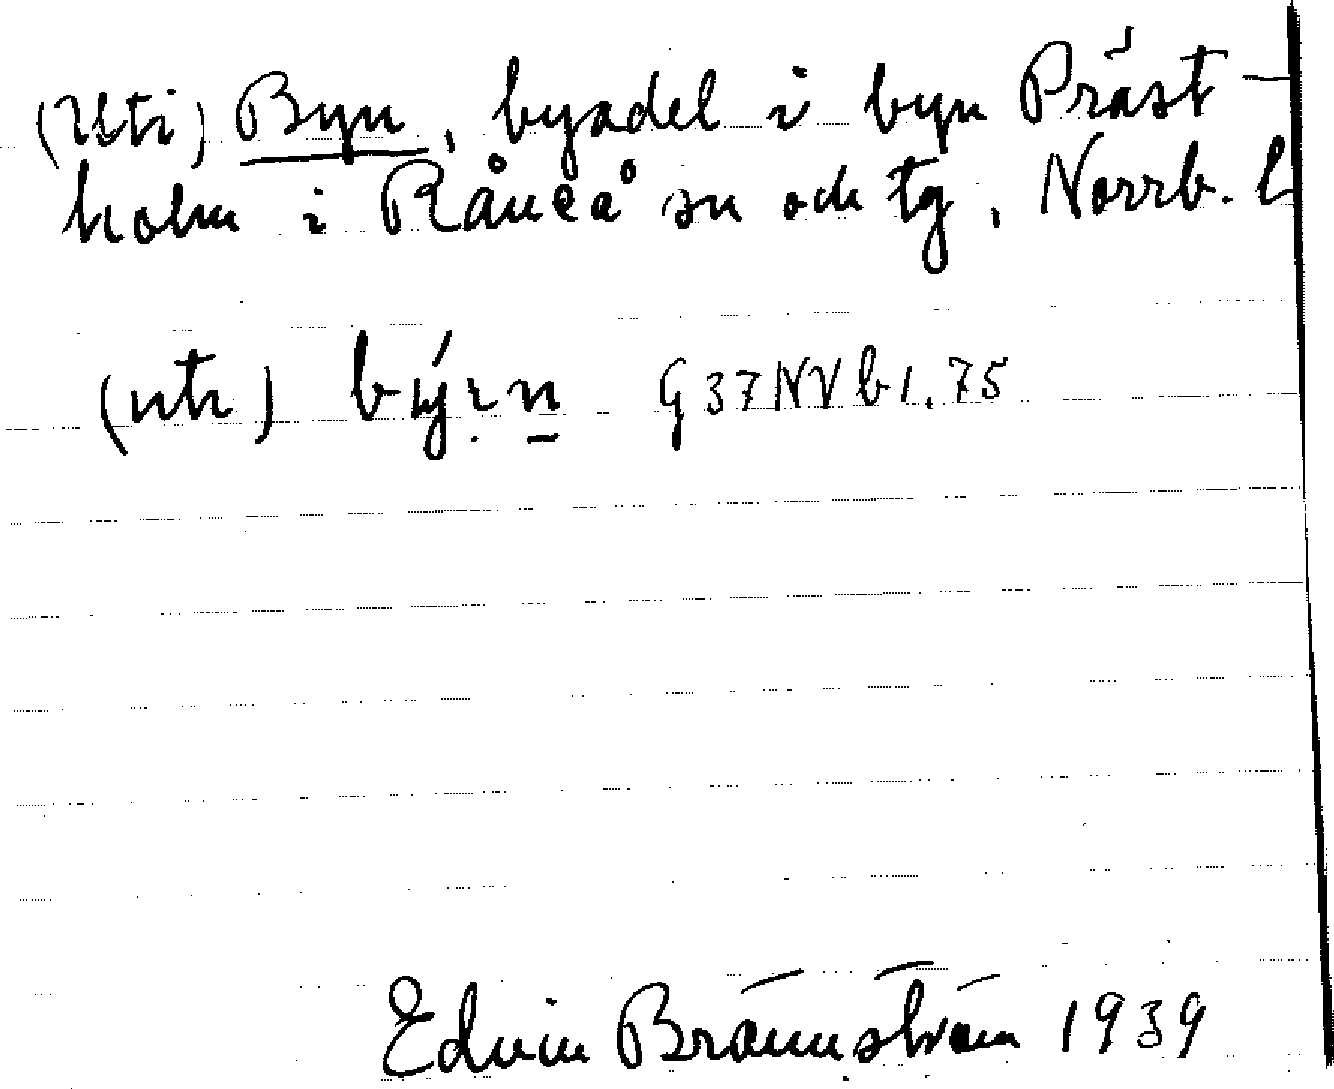 (Uti) Byn, byadel i byn Präst-
holm i Råneå sn och tg, Norrb. l
(uti) by´ɩ̣n̲ G37NVb1.75
Edvin Brännström 1939